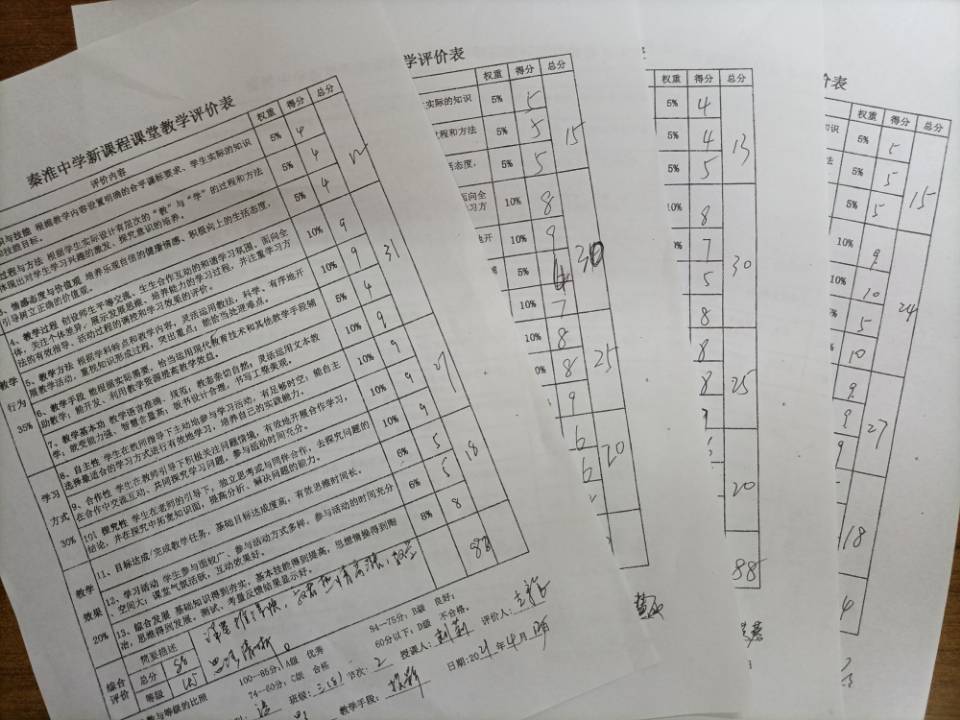 秦淮中学新课程课堂教学评价表
评价内容 权重 得分 总分
识与技能 根据教学内容设置明确的合乎课标要求、学生实际的知识 5% 4 12
和技能目标。
过程与方法 根据学生实际设计有层次的“教”与“学”的过程和方法 5% 4
体现出对学生学习兴趣的激发、探究意识的培养。
3、情感态度与价值观 培养乐观自信的健康情感、积极向上的生活态度, 5% 4
引导树立正确的价值观。
4、教学过程 创设师生平等交流、生生合作互动的和谐学习氛围,面向全 10% 9 31
体,关注个体差异,展示发展思维、培养能力的学习过程,并注重学习方
法的有效指导、活动过程的调控和学习效果的评价。
教学 5、教学方法 根据学科特点和教学内容,灵活运用教法,科学、有序地开 10% 9
展教学活动,重视知识形成过程,突出重点;能恰当处理难点。
行为 6、教学手段 能根据实际需要,恰当运用现代教育技术和其他教学手段辅 5% 4
助教学;能开发、利用教学资源提高教学效益。
35% 7、教学基本功 教学语言准确、规范;教态亲切自然;灵活运用文本教 10% 9
学;应变能力强、智慧含量高;板书设计合理,书写工整美观。
8、自主性 学生在教师指导下主动地参与学习活动,有足够时空;能自主 10% 9 27
选择最适合的学习方式进行有效地学习,培养自己的实践能力。
学习 9、合作性 学生在教师引导下积极关注问题情境,有效地开展合作学习, 10% 9
方式 在合作中交流互动、共同探究学习问题,参与活动时间充分。
30% 10、探究性 学生在老师的引导下,独立思考或与同伴合作,去探究问题的 10% 9
结论,并在探究中拓宽知识面,提高分析、解决问题的能力。
11、目标达成/完成教学任务,基础目标达成度高,有效思维时间长。 6% 5 18
教学 12、学习活动 学生参与面较广、参与活动方式多样,参与活动的时间充分 6% 5
效果 空间大;课堂气氛活跃,互动效果好。
20% 13、综合发展 基础知识得到夯实,基本技能得到提高,思想情操得到陶 8% 8
冶,思维得到发展。测试、考量反馈结果显示好。
88
综合 简要描述
评价 总分 88
等级
数与等级的比照 100—85分:A级 优秀 84—75分,B级 良好;
74—60分:C级 合格 60分以下:D级 不合格。
班级: 节次:2 授课人: 评价人:
教学手段: 日期:2021年4月
学评价表
权重 得分 总分
生实际的知识 5% 5 15
过程和方法 5% 5
活态度, 5% 5
面向全 10% 8 30
学习方
地开 10% 9
5%
10% 7
10% 8 25
0% 8
9
6 20
6
权重 得分 总分
5% 4 13
5% 4
5% 5
10% 8 30
7
5
8
8 25
8
20
88
价表
权重 得分 总分
知识 5% 5 15
法 5% 5
5% 5
10% 9 24
10% 10
5% 5
10% 10
9 27
9
9
18
4